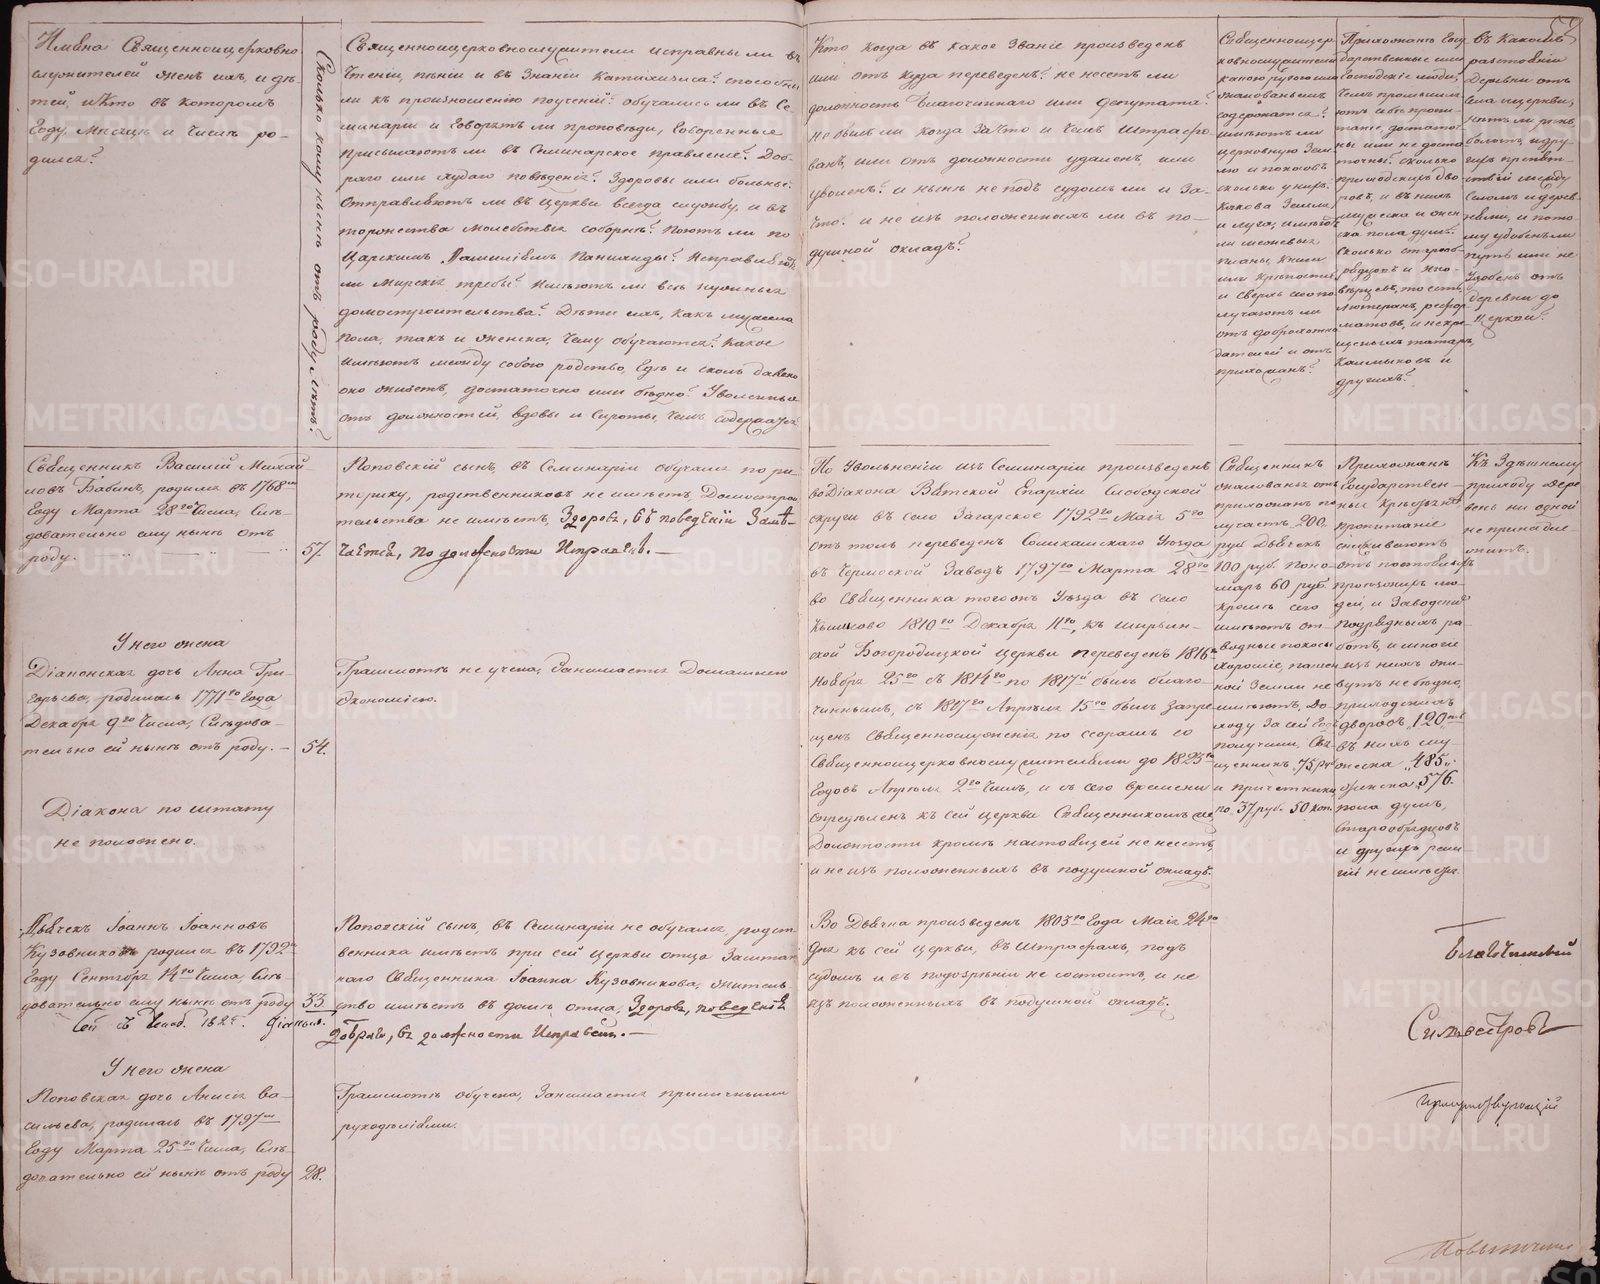 Имена Священноцерковно
служителей женъ ихъ, и дѣ-
тей, и кто въ которомъ
Году, Мѣсяцѣ и Числѣ ро-
дился?
Сколько кому нынѣ отъ роду лѣтъ?
Священноцерковнослужители исправны ли въ
Чтеніи, пѣніи и въ Знаніи Катихизиса? способны
ли къ произношенію поученій? обучались ли въ Се-
минаріи и Говорятъ ли проповѣди, Говоренные
присылаютъ ли въ Семинарское правленіе? Доб-
раго или худаго поведенія? Здоровы или больны?
Отправляютъ ли въ Церкви всегда службу, и въ
торжества молебствія соборнѣ? Поютъ ли по
Царскимъ Фамиліямъ Панихиды? Исправляютъ
ли Мирскія требы? Имѣютъ ли всѣ нужныя
домостроительства? Дѣти ихъ, какъ мужеска
пола, такъ и женска, Чему обучаются? Какое
имѣютъ между собою родство, Гдѣ и сколь давно
кто живетъ, достаточно или бѣдно? Уволенные
отъ должностей, вдовы и Сироты, Чемъ содержатся
Кто когда въ какое Званіе произведенъ
или отъ куда переведенъ? не несетъ ли
должность Благочиннаго или Депутата?
не былъ ли когда За что и Чемъ Штрафо-
ванъ, или отъ должности удаленъ, или
уволенъ? и нынѣ не подъ судомъ ли и За-
что? и не изъ положенныхъ ли въ по-
душной окладъ?
Священноцер-
ковнослужители
какою ругою или
жалованьемъ
содержатся?
имѣютъ ли
церковную Зем-
лю и покосовъ
сколько у нихъ.
Какова Земля
и луга, имѣютъ
ли межевые
планы, Книги
или Крѣпости
и сверхъ сего по-
лучаютъ ли
отъ доброхотно
дателей и отъ
прихожанъ?
Прихожане Госу-
дарственные или
Господскіе люди,
Чемъ промышля-
ютъ себѣ пропи-
таніе, достаточ-
ны или не доста-
точны? сколько
приходскихъ дво-
ровъ, и въ нихъ
мужеска и жен-
ска пола душъ?
сколько старооб-
рядцовъ и ино-
вѣрцевъ, то есть
Лютеранъ, рефор-
матовъ, и некре-
щеныхъ татаръ,
Калмыковъ и
другихъ?
Въ какомъ
разстояніи
Деревни отъ
села и церкви,
нѣтъ ли рѣкъ
болотъ, и дру-
гихъ препят-
ствій между
Селомъ и дерев-
нями, и пото-
му удобенъ ли
путь или не
удобенъ отъ
деревни до
церкви?
Священникъ Василій Михай-
ловъ Бабинъ, родился въ 1768мъ
Году Марта 28го Числа, Слѣ-
довательно ему нынѣ отъ
роду.
57.
Поповскій сынъ, въ Семинаріи обучался по ри-
торику, родственниковъ не имѣетъ, Домострои-
тельства не имѣетъ, Здоровъ, въ поведеніи Замѣ-
чается, По должности Исправенъ.
По Увольненіи изъ Семинаріи произведенъ
во Діакона Вятской Епархіи Слободской
округи въ село Загарское 1792го Маія 5го
отъ толь переведенъ Соликамскаго Уѣзда
въ Чермоской Заводъ 1797го Марта 28го
во Священника того жъ Уѣзда въ село
1810го Декабря 11го, къ
ской Богородицкой церкви переведенъ 1816го
Ноября 25го съ 1814го по 1817й былъ благо-
чиннымъ, съ 1817го Апрѣля 15го былъ Запре-
щенъ Священнослуженія по ссорамъ со
Священноцерковнослужителями до 1823го
Годовъ Апрѣля 2го Числа, и съ сего времени
опредѣленъ къ сей церкви Священникомъ,
Должности кромѣ настоящей не несетъ,
и не изъ положенныхъ въ подушной окладъ.
Священникъ
жалованья отъ
прихожанъ по-
лучаетъ 200.
руб. Дьячекъ
100 руб. Поно-
марь 60 руб.
кромѣ сего
имѣютъ от-
водные покосы
хорошіе, пахен-
ной Земли не
имѣютъ, До-
ходу За сей Годъ
получили, Свя-
щенникъ 75 руб.
и причетники
по 37 руб. 50 коп.
Прихожане
Государствен-
ные Крестьяне
пропитаніе
снискиваютъ
отъ постоялыхъ
проѣзжихъ лю-
дей, и Заводскихъ
Подрядныхъ ра-
ботъ, и многіе
изъ нихъ жи-
вутъ не бѣдно,
приходскихъ
дворовъ "120ть
въ нихъ му-
жеска "485"
женска "576.
пола душъ,
старообрядцовъ
и другихъ рели-
гій не имѣется.
Къ Здѣшнему
приходу Дере-
вень ни одной
не принадле-
житъ.
У него жена
Діаконская дочь Анна Гри-
горьева, родилась 1771го Года
Декабря 9го Числа, Слѣдова-
тельно ей нынѣ отъ роду. -
54.
Грамотѣ не учена, Занимается Домашнею
Экономіею.
Діакона по штату
не положено.
Дьячекъ Іоаннъ Іоанновъ
Кузовниковъ родился въ 1792мъ
Году Сентября 14го Числа, Слѣ-
довательно ему нынѣ отъ роду
33.
Поповскій сынъ, въ Семинаріи не обучался, родст-
венника имѣетъ при сей церкви отца Заштат-
наго Священника Іоанна Кузовникова, житель-
ство имѣетъ въ домѣ отца, Здоровъ, поведенія
добраго, въ должности Исправенъ.
Во Дьячка произведенъ 1803го Года Маія 24го
Дня къ сей церкви, въ Штрафахъ, подъ
судомъ и въ подозрѣніи не состоитъ, и не
изъ положенныхъ въ подушной окладъ.
У него жена
Поповская дочь Анисья Ва-
сильева, родилась въ 1797мъ
Году Марта 25го Числа, Слѣ-
довательно ей нынѣ отъ роду
28.
Грамотѣ обучена, Занимается приличными
рукодѣліями.
Благочинный
Сильвестровъ
METRIKI.GASO-URAL.RU